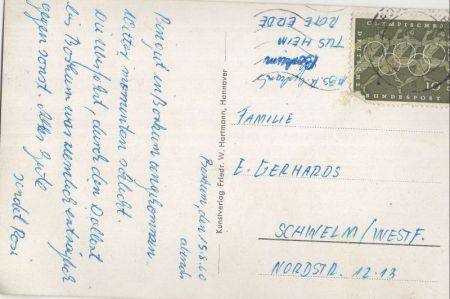 Borkum, den 15.8.60
abends
Bin gut in Borkum angekommen.
Wetter momentan schlecht.
Die Überfahrt, durch den Dollart
bis Borkum war ziemlich
gegen sonst. Alles Gute
Kunstverlag Friedr. W. Hartmann, Hannover
ABS. K.
Borkum
TUS HEIM
ROTE ERDE
OLYMPISCHES
DEUTSCHE
BUNDESPOST
10
FAMILIE
E. GERHARDS
SCHWELM/WESTF.
NORDSTR. 12-13